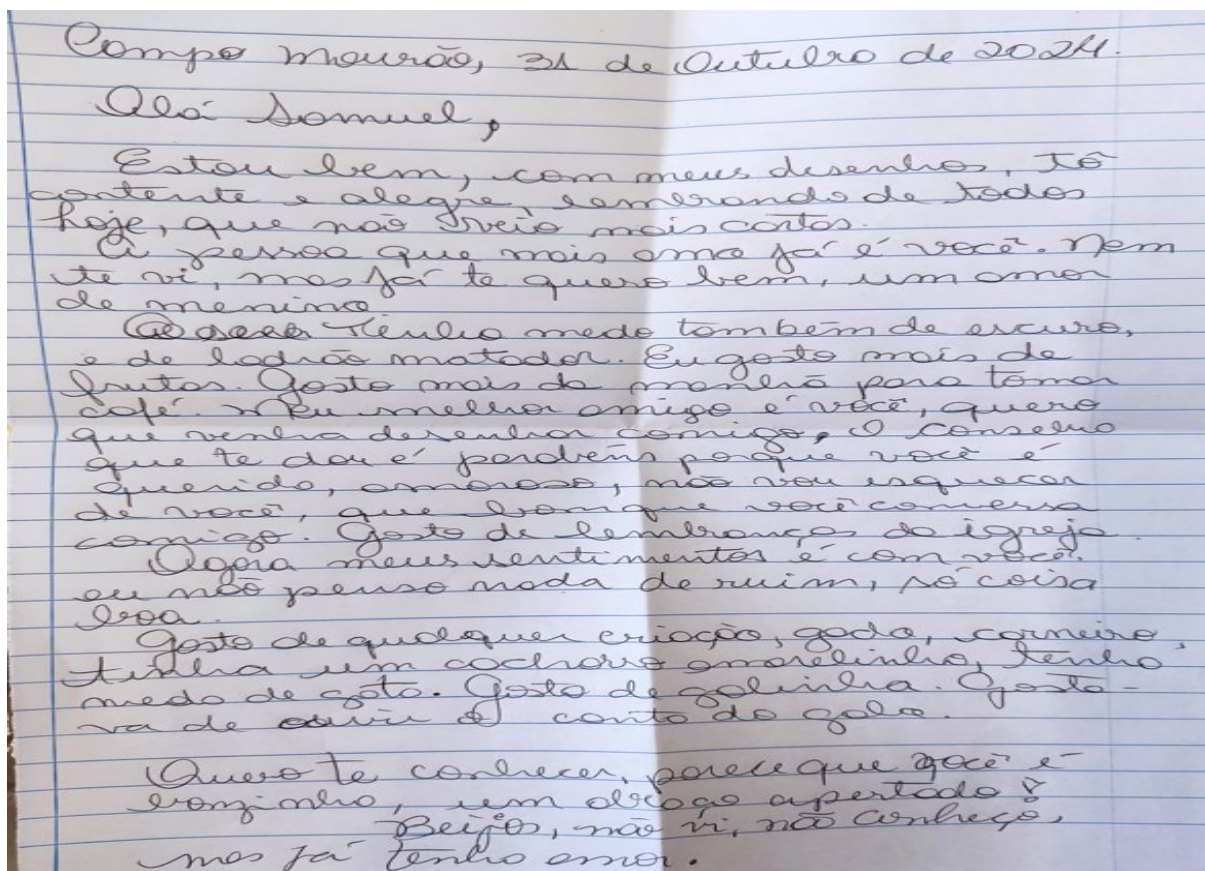 Campo Mourão, 31 de Outubro de 2024.
Olá Samuel,
Estou bem, com meus desenhos, tô
contente e alegre, lembrando de todos
hoje, que não veio mais cartas.
A pessoa que mais amo já é você. Nem
te vi, mas já te quero bem, um amor
de menino
Tenho medo também de escuro,
e de ladrão matador. Eu gosto mais de
frutas. Gosto mais da manhã para tomar
café. Meu melhor amigo é você, quero
que venha desenhar comigo, O conselho
que te dou é parabéns porque você é
querido, amoroso, não vou esquecer
de você, que bom que você conversa
comigo. Gosto de lembranças da igreja.
Agora meus sentimentos é com você.
eu não penso nada de ruim, só coisa
boa.
Gosto de qualquer criação, gado, carneiro,
tinha um cachorro amarelinho, tenho
medo de gato. Gosto de galinha. Gosta-
va de ouvir o canto do galo.
Quero te conhecer, parece que você é
bonzinho, um abraço apertado!
Beijos, não vi, não conheço,
mas já tenho amor.